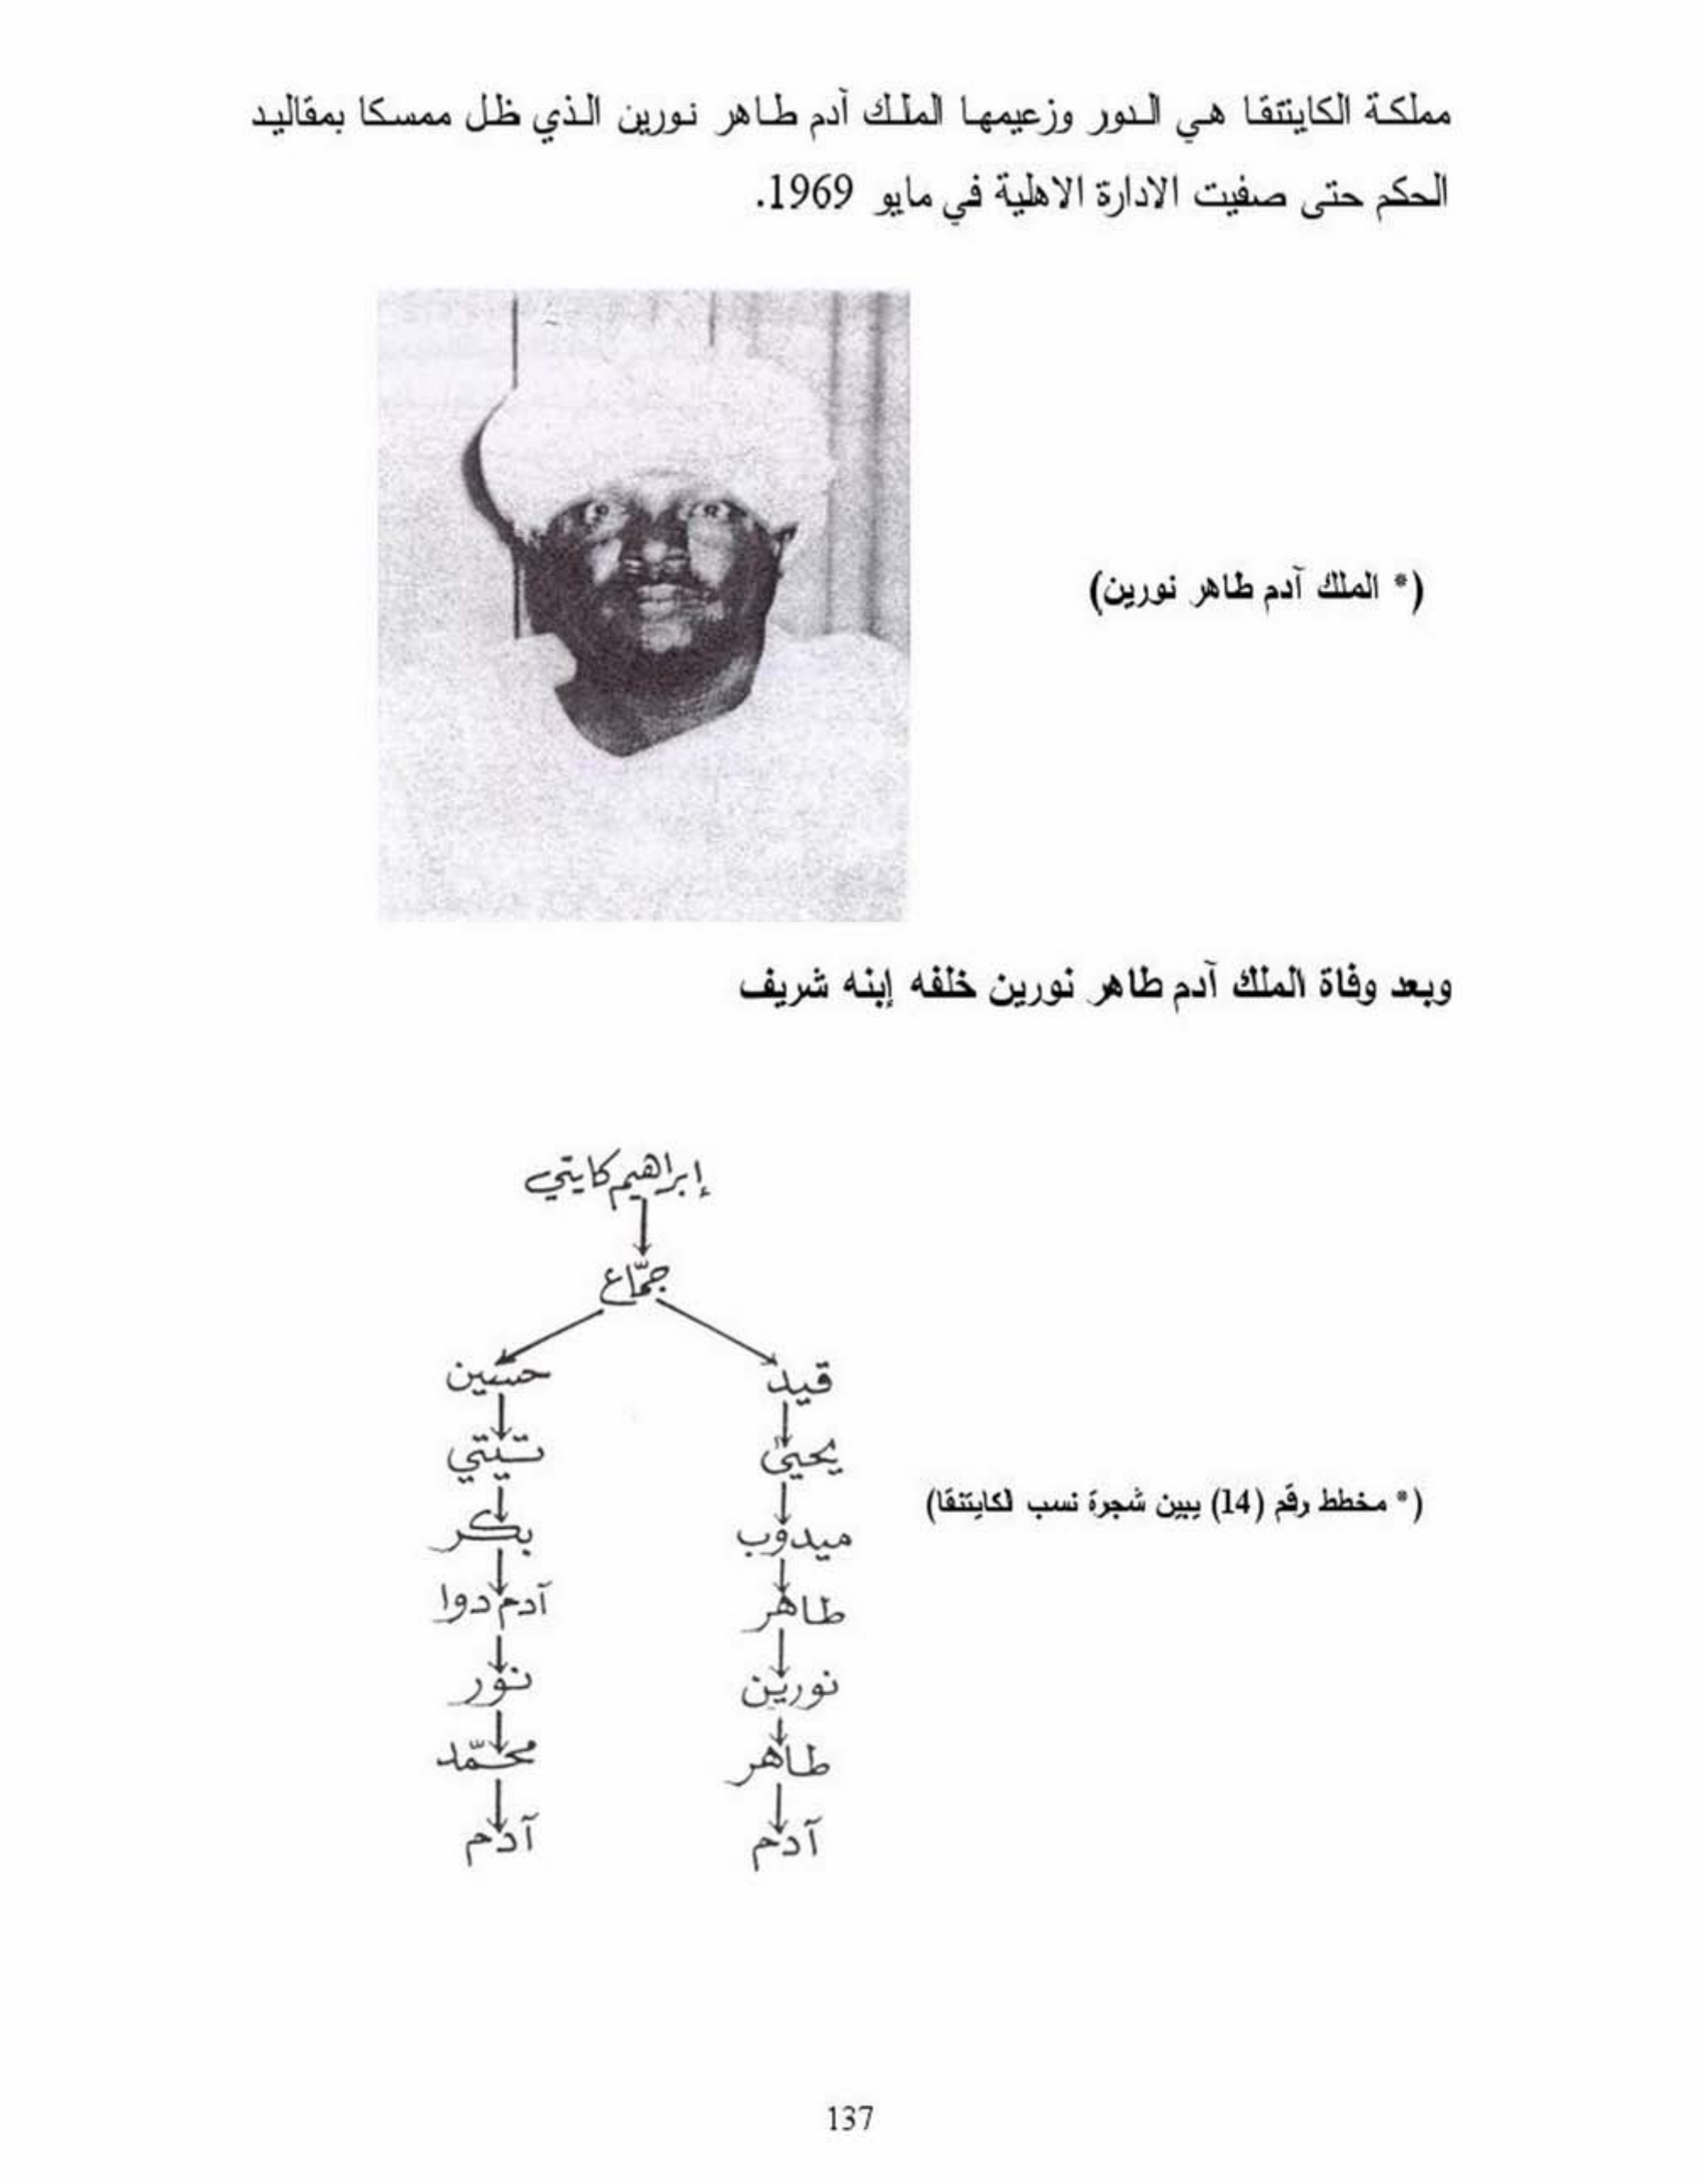 مملكة الكايتنقا هي الدور وزعيمها الملك آدم طاهر نورين الذي ظل ممسكا بمقاليد
الحكم حتى صفيت الادارة الاهلية في مايو 1969.
(* الملك آدم طاهر نورين)
وبعد وفاة الملك آدم طاهر نورين خلفه إبنه شريف
إبراهيم كايتي
جمّاع
قيد
يحيىٰ
ميدوب
طاهر
نورين
طاهر
آدم
حسين
تيتي
بكر
آدم دوا
نور
محمّد
آدم
(* مخطط رقم (14) يبين شجرة نسب لكايتنقا)
137